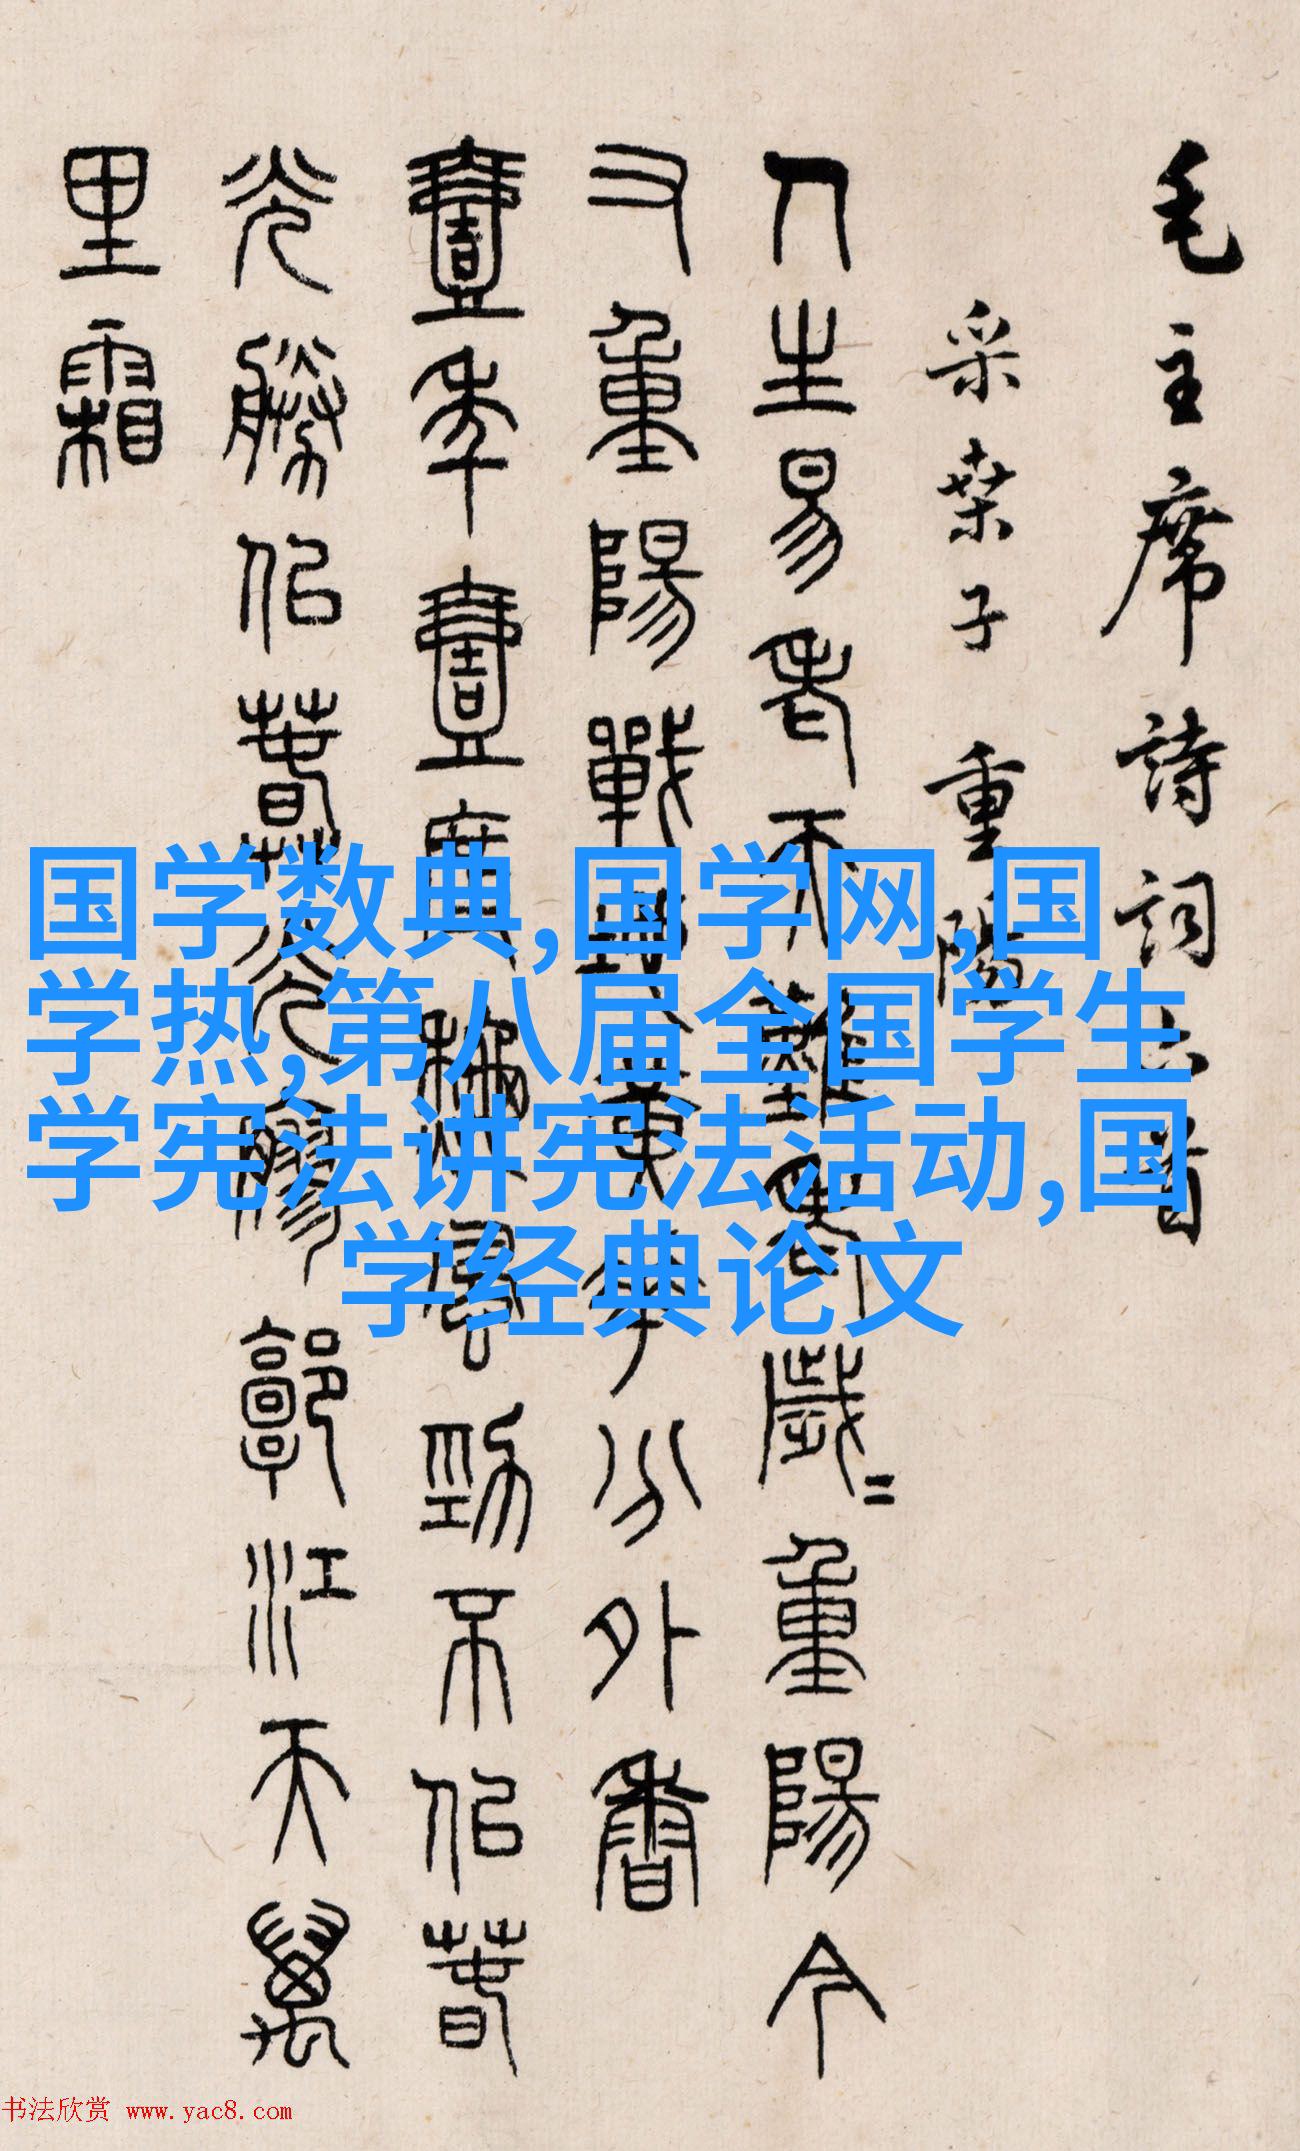 毛主席詩詞首
采桑子 重陽
人生易老天難老歲〻重陽今
又重陽戰地黃華分外香
壹年壹度秋風勁不佀萅
光勝佀萅光寥廓江天萬
里霜
国学数典,国学网,国
学热,第八届全国学生
学宪法讲宪法活动,国
学经典论文
书法欣赏 www.yac8.com